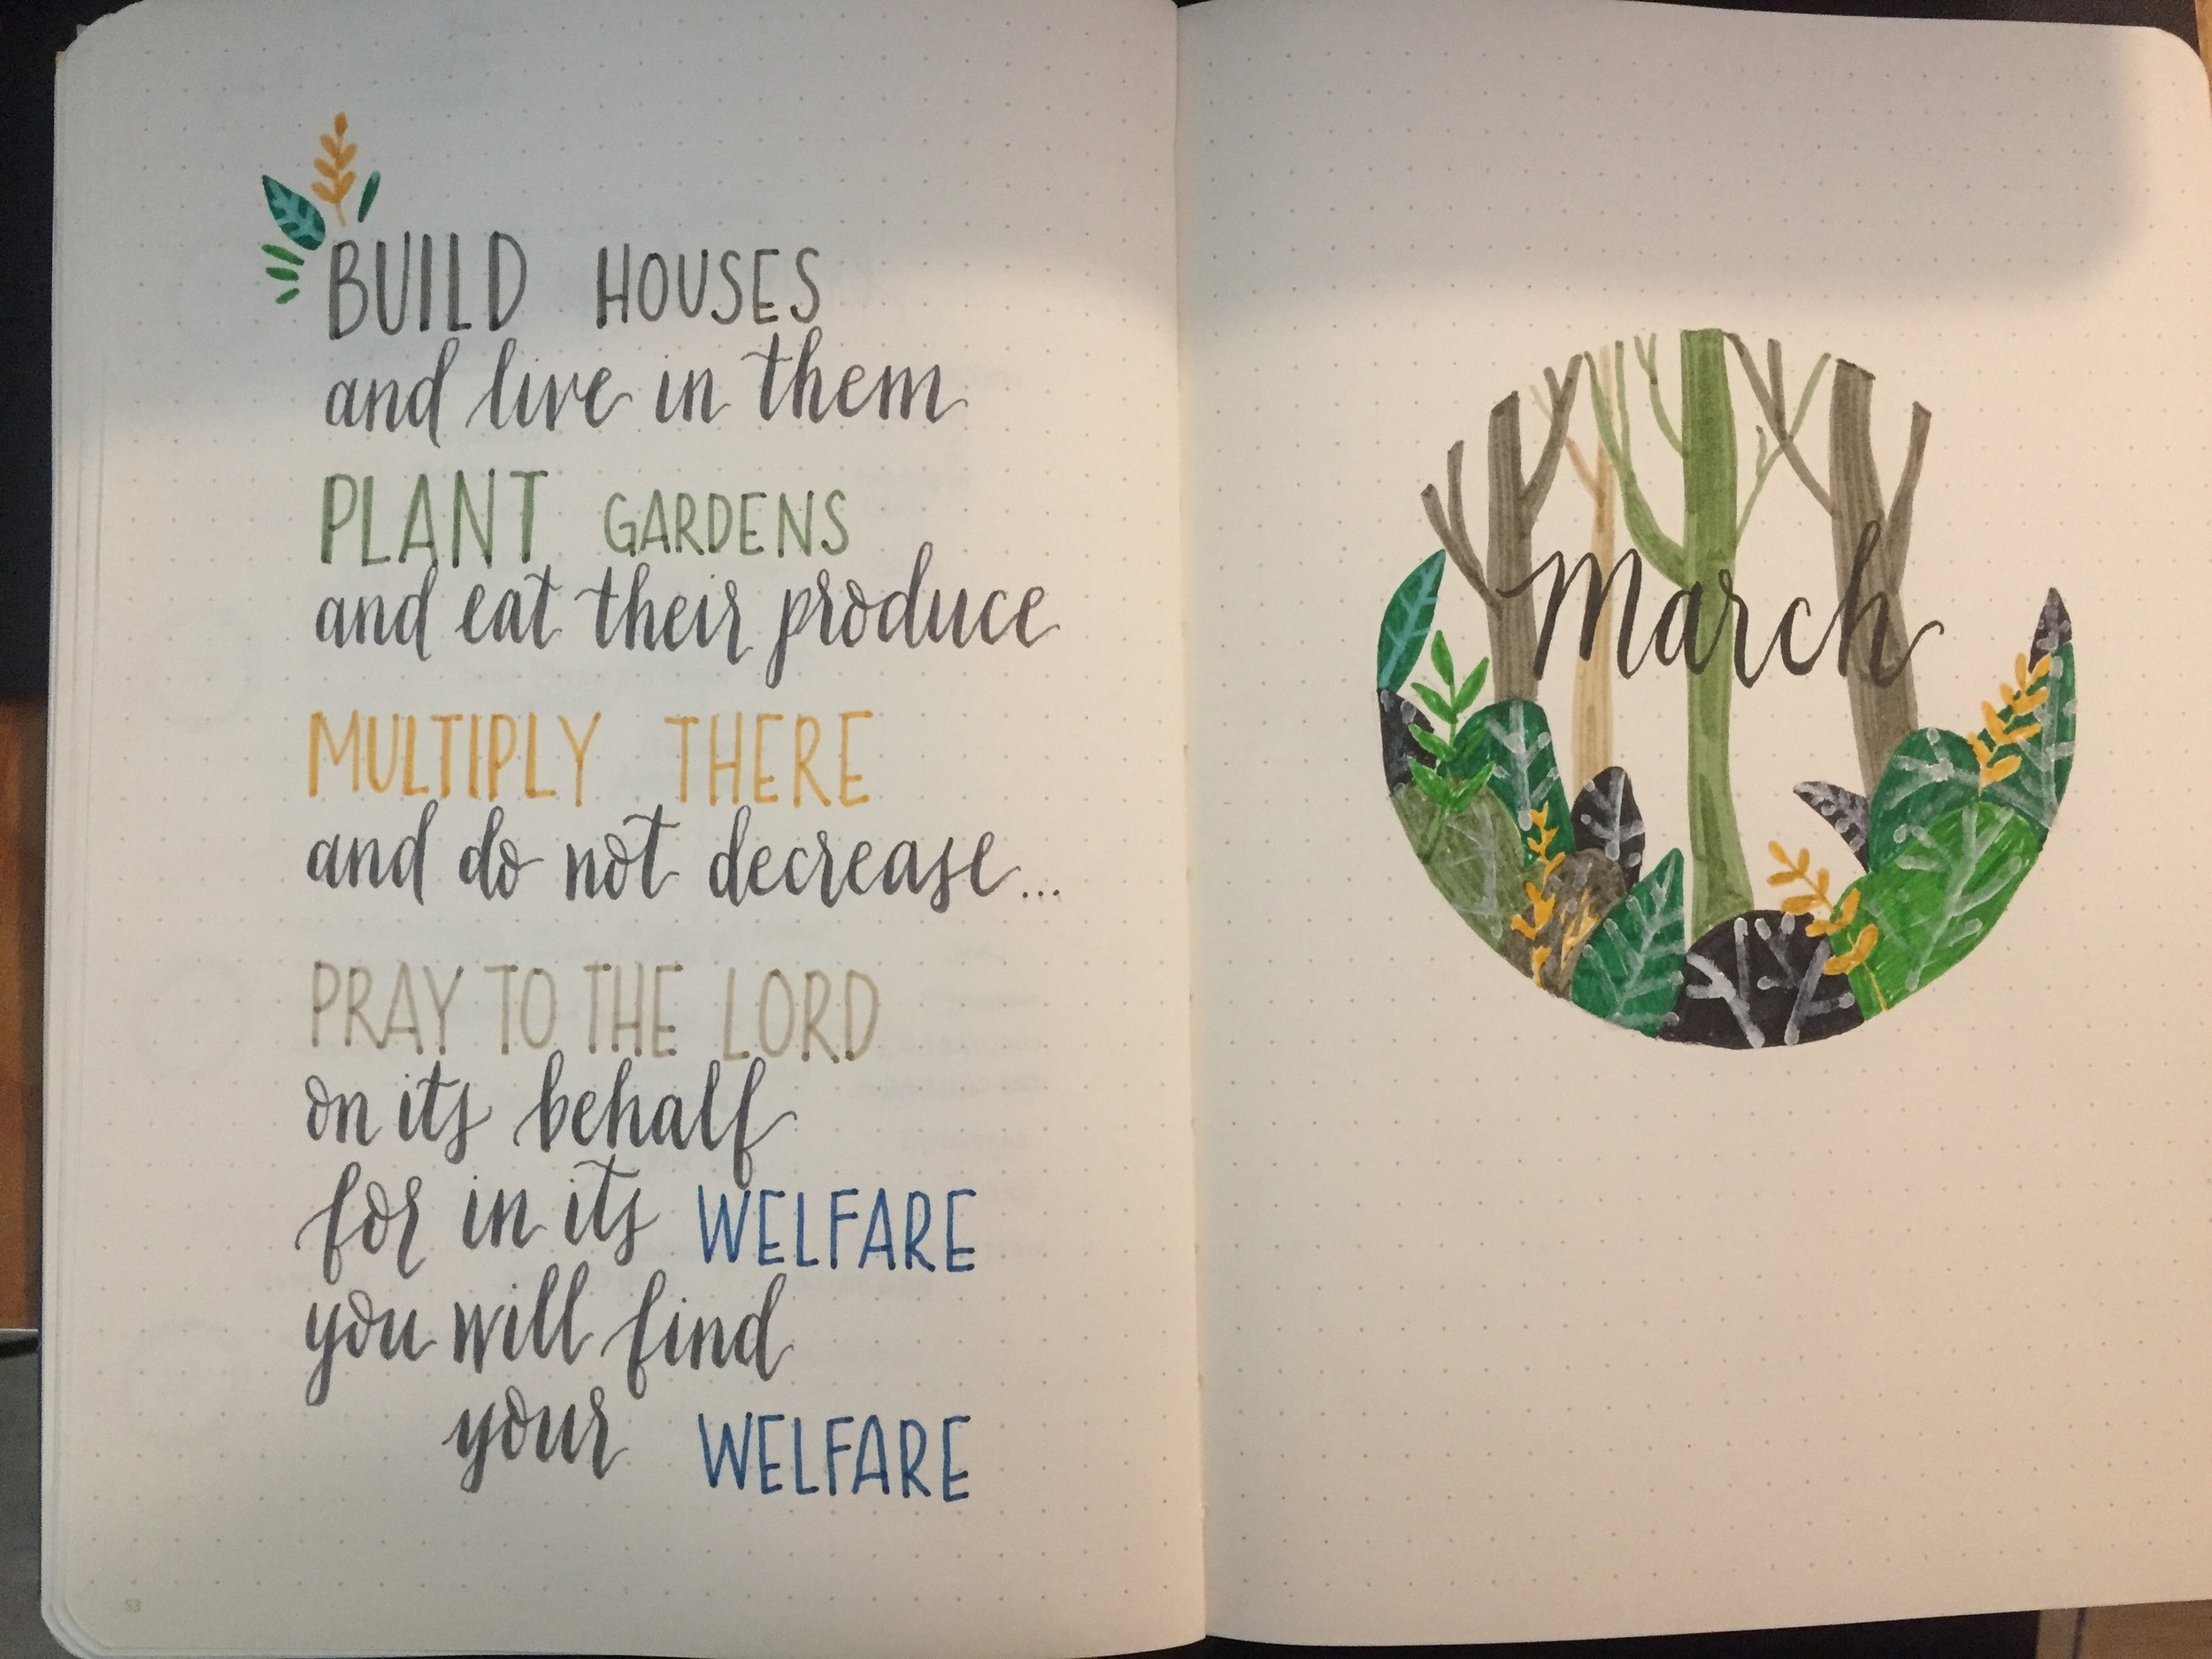 BUILD HOUSES
and live in them
PLANT GARDENS
and eat their produce
MULTIPLY THERE
and do not decrease...
PRAY TO THE LORD
on its behalf
for in its WELFARE
you will find
your WELFARE
53
March